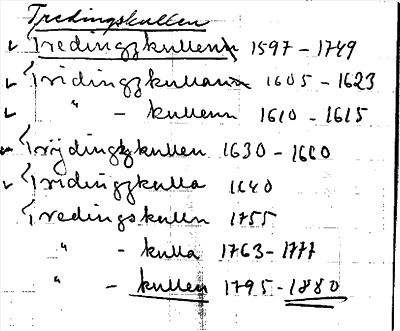 Tredingskullen
✓ Tredingzkullenn 1597 – 1749
✓ Tridingzkullann 1605 – 1623
✓ " – kullenn 1610 – 1615
✓ Trijdingzkullen 1630 – 1660
✓ Tridingzkulla 1640
Tredingskulln 1755
" – kulla 1763 – 1777
" – kullen 1795 – 1880